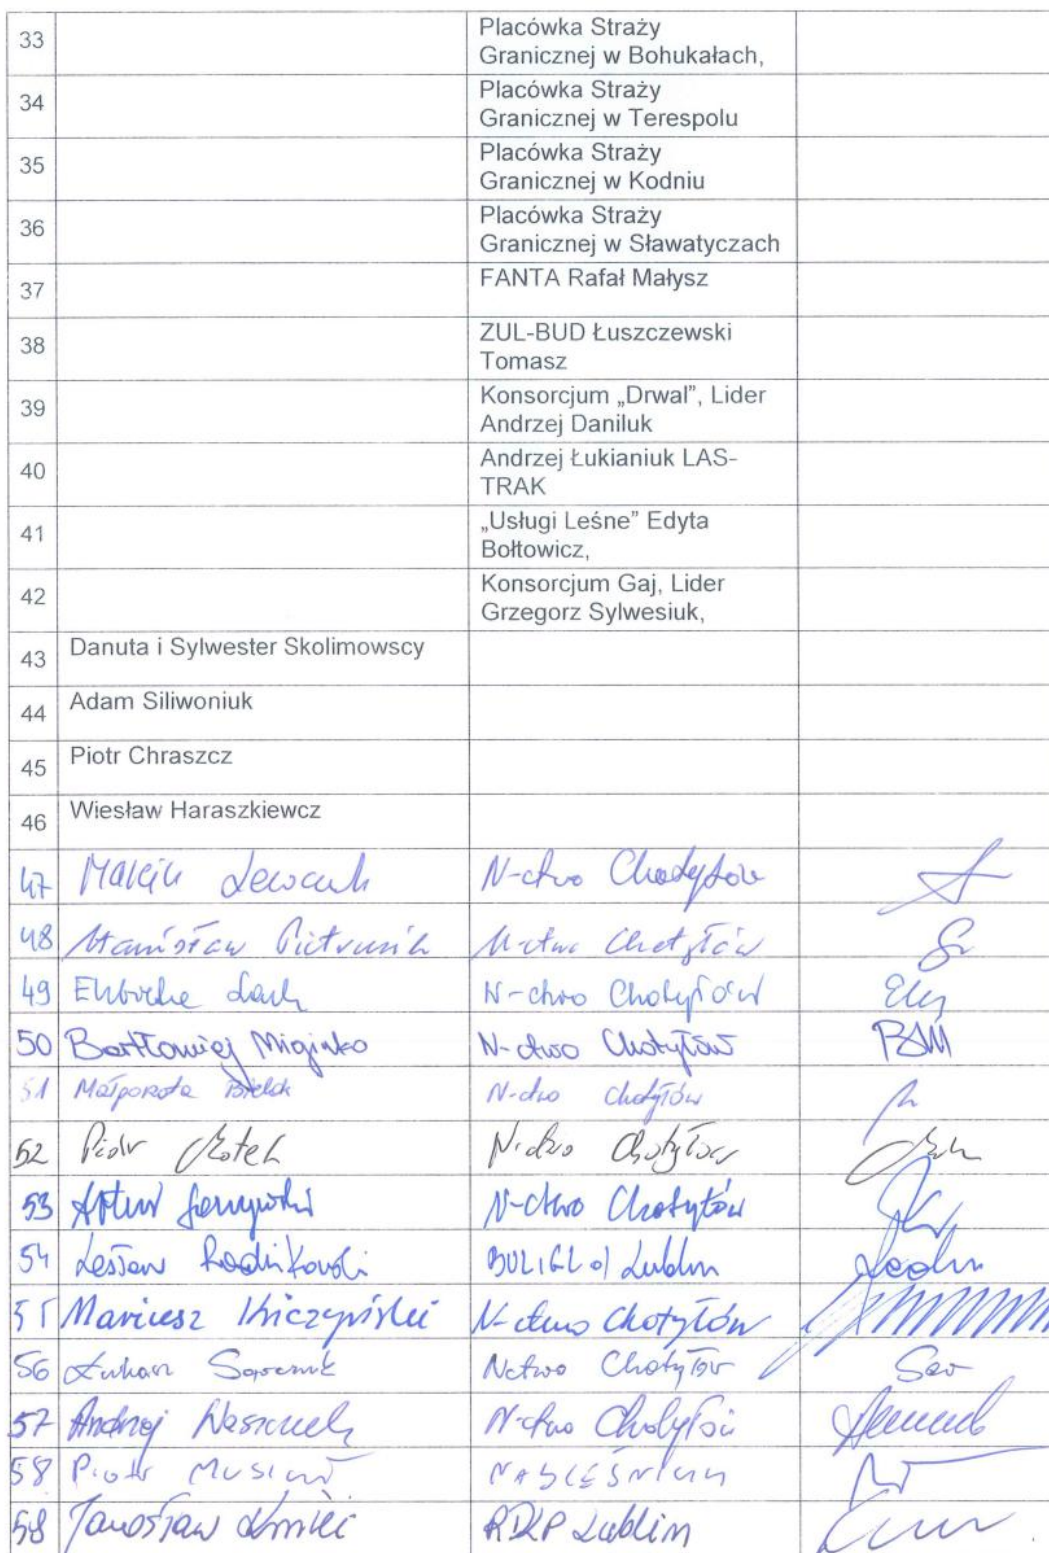 33 Placówka Straży
Granicznej w Bohukałach,
34 Placówka Straży
Granicznej w Terespolu
35 Placówka Straży
Granicznej w Kodniu
36 Placówka Straży
Granicznej w Sławatyczach
37 FANTA Rafał Małysz
38 ZUL-BUD Łuszczewski
Tomasz
39 Konsorcjum „Drwal”, Lider
Andrzej Daniluk
40 Andrzej Łukianiuk LAS-
TRAK
41 „Usługi Leśne” Edyta
Bołtowicz,
42 Konsorcjum Gaj, Lider
Grzegorz Sylwesiuk,
43 Danuta i Sylwester Skolimowscy
44 Adam Siliwoniuk
45 Piotr Chraszcz
46 Wiesław Haraszkiewcz
47 Marcin N-ctwo Chotyłów
48 Stanisław N-ctwo Chotyłów
49 N-ctwo Chotyłów
50 Bartłomiej N-ctwo Chotyłów BM
51 Małgorzata N-ctwo Chotyłów
52 Piotr N-ctwo Chotyłów
53 Artur N-ctwo Chotyłów
54 Lesław BULiGL o/ Lublin
55 Mariusz N-ctwo Chotyłów
56 Łukasz N-ctwo Chotyłów
57 Andrzej N-ctwo Chotyłów
58 Piotr
58 Jarosław RDLP Lublin